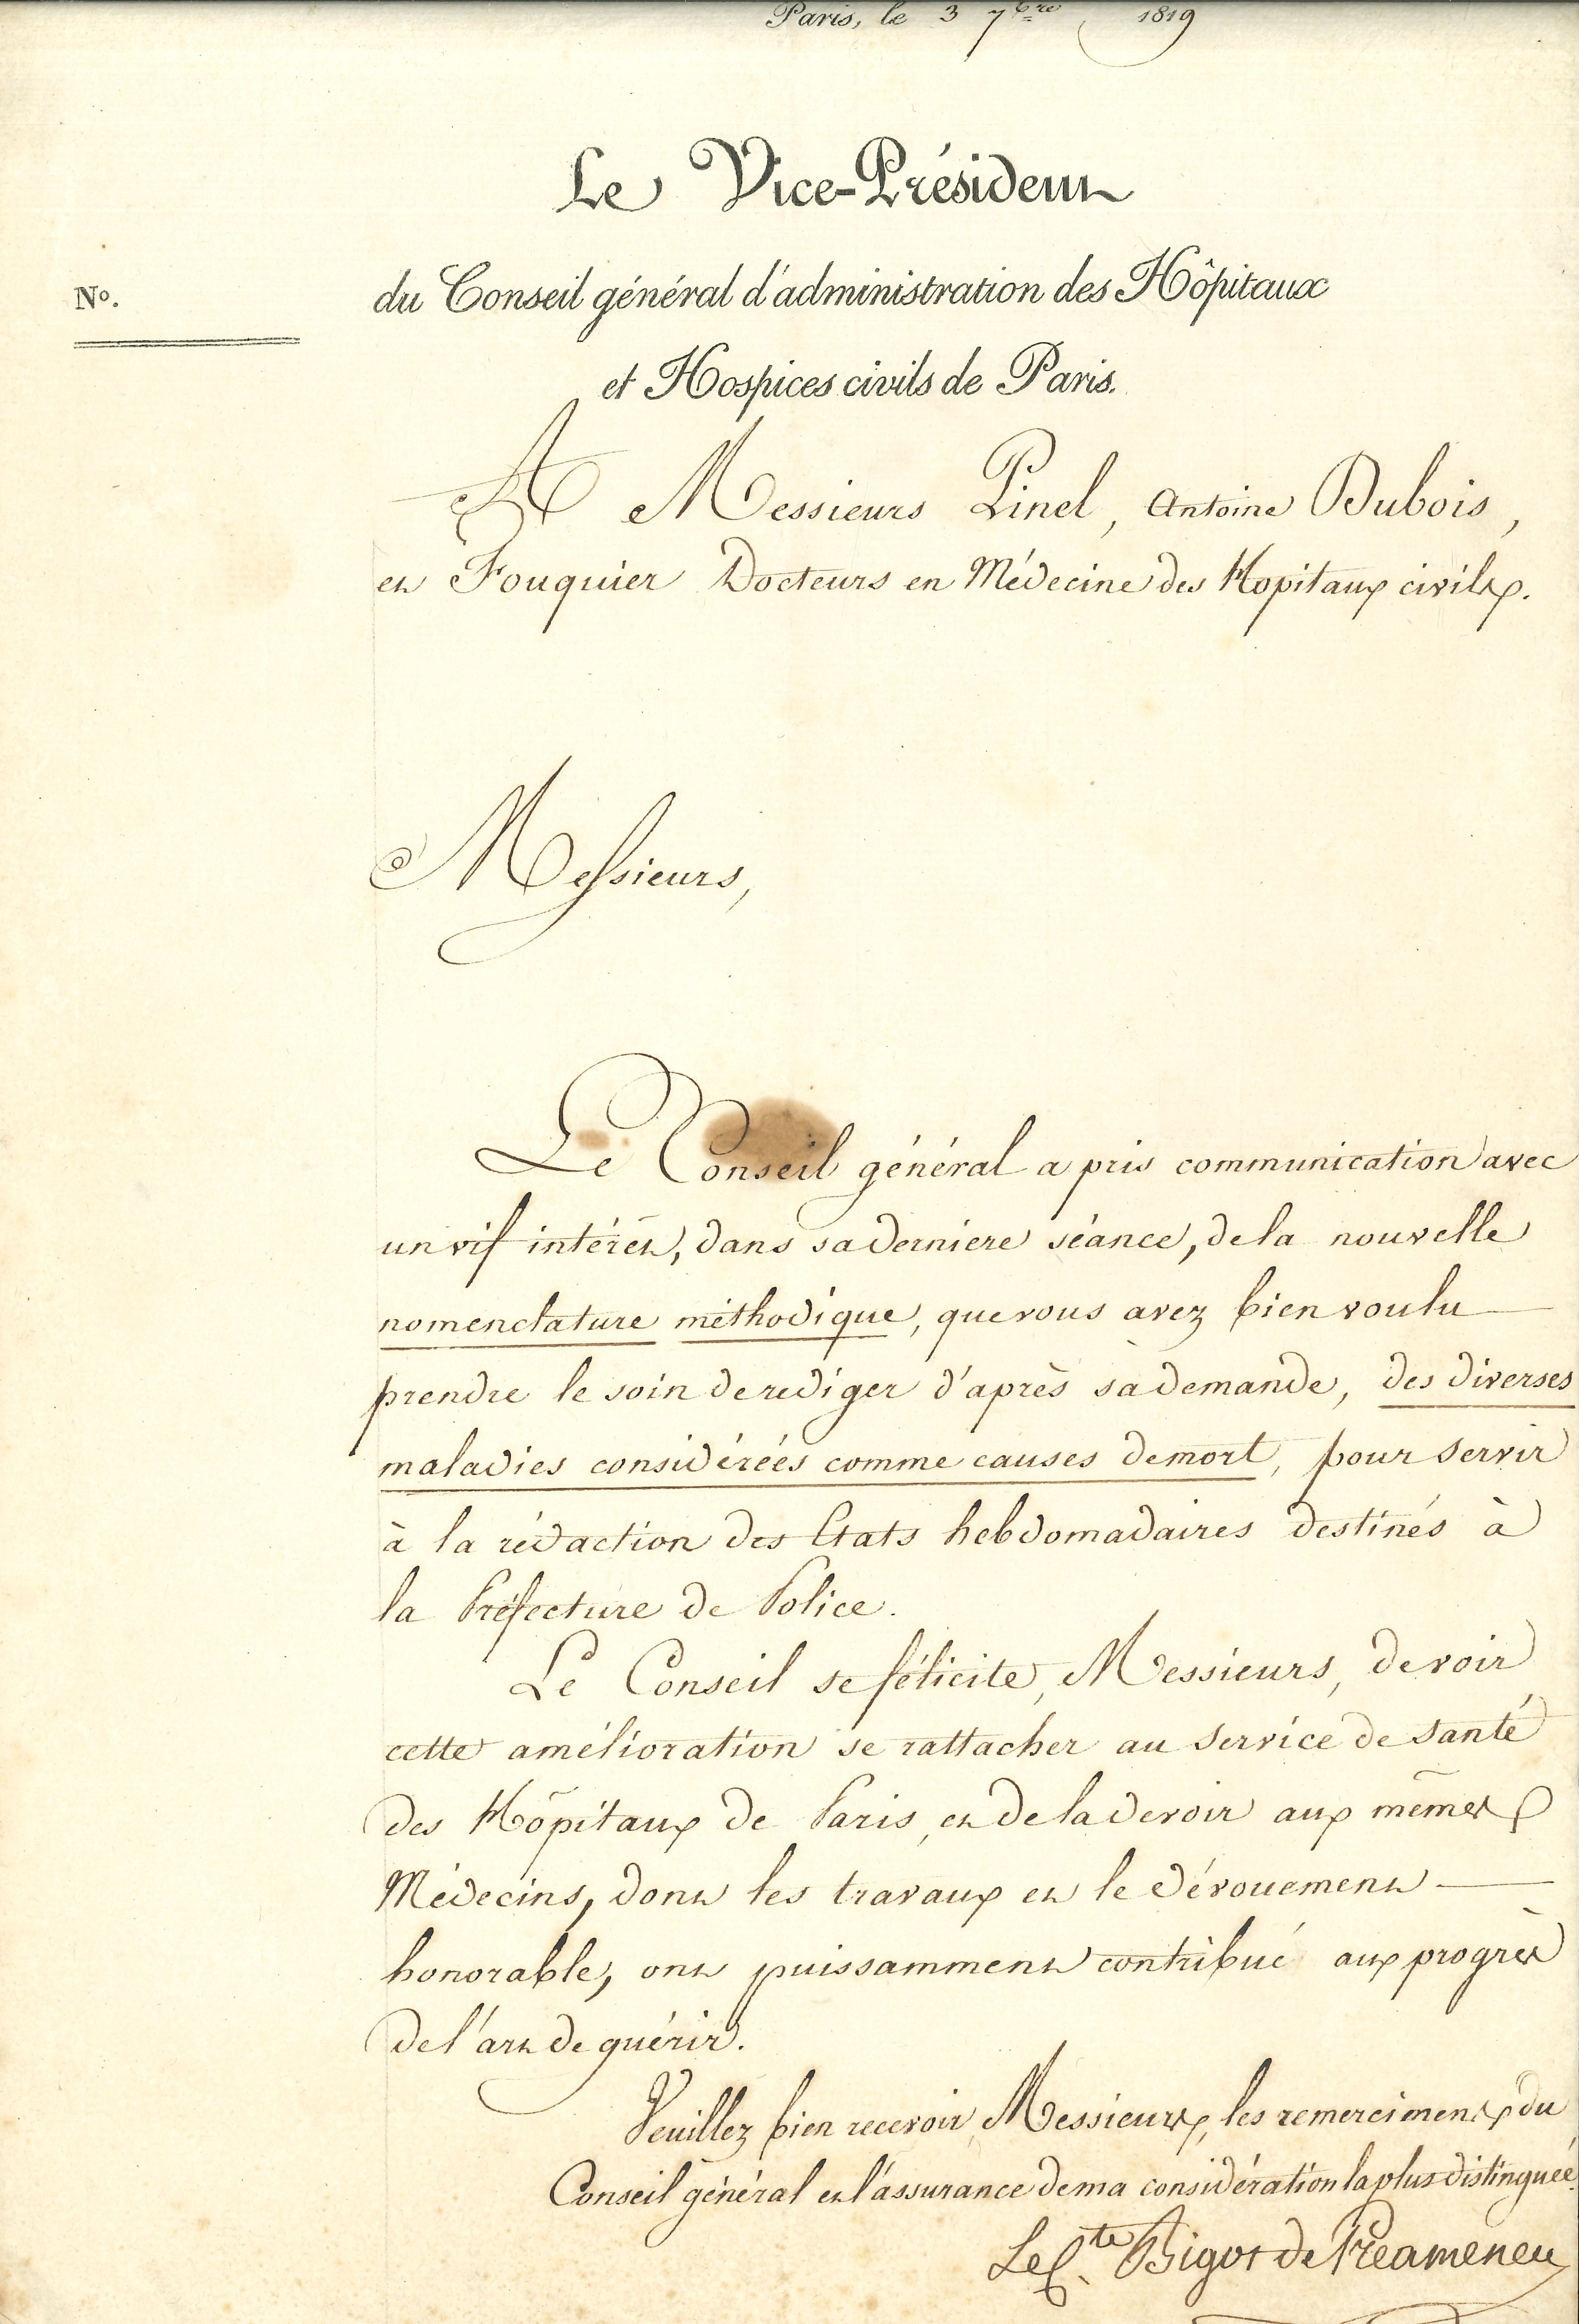 Paris, le 3 7bre 1819
Le Vice-Président
N°.
du Conseil général d'administration des Hôpitaux
et Hospices civils de Paris.
A Messieurs Pinel, Antoine Dubois,
et Fouquier Docteurs en Médecine des Hopitaux civils.
Messieurs,
Le Conseil général a pris communication avec
un vif intérêt, dans sa derniere séance, de la nouvelle
nomenclature méthodique, que vous avez bien voulu
prendre le soin de rediger d'après sa demande, des diverses
maladies considérées comme causes de mort, pour servir
à la rédaction des Etats hebdomadaires destinés à
la Préfecture de Police.
Le Conseil se félicite, Messieurs, de voir
cette amélioration se rattacher au service de santé
des Hôpitaux de Paris, et de la devoir aux mêmes
Médecins, dont les travaux et le dévouement
honorable, ont puissamment contribué aux progrès
de l'art de guérir.
Veuillez bien recevoir, Messieurs, les remercimens du
Conseil général et l'assurance de ma considération la plus distinguée.
Le Cte Bigot de Préameneu